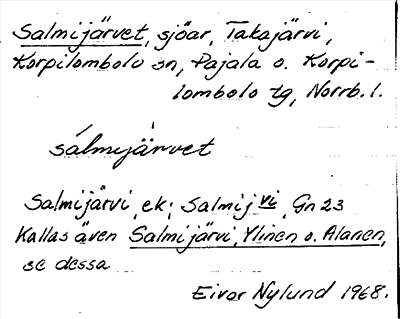 Salmijärvet, sjöar, Takajärvi,
Korpilombolo sn, Pajala o. Korpi-
lombolo tg, Norrb. l.
sálmijä̀rvet
Salmijärvi, ek; Salmij vi, Gn 23
Kallas även Salmijärvi, Ylinen o. Alanen,
se dessa
Eivor Nylund 1968.